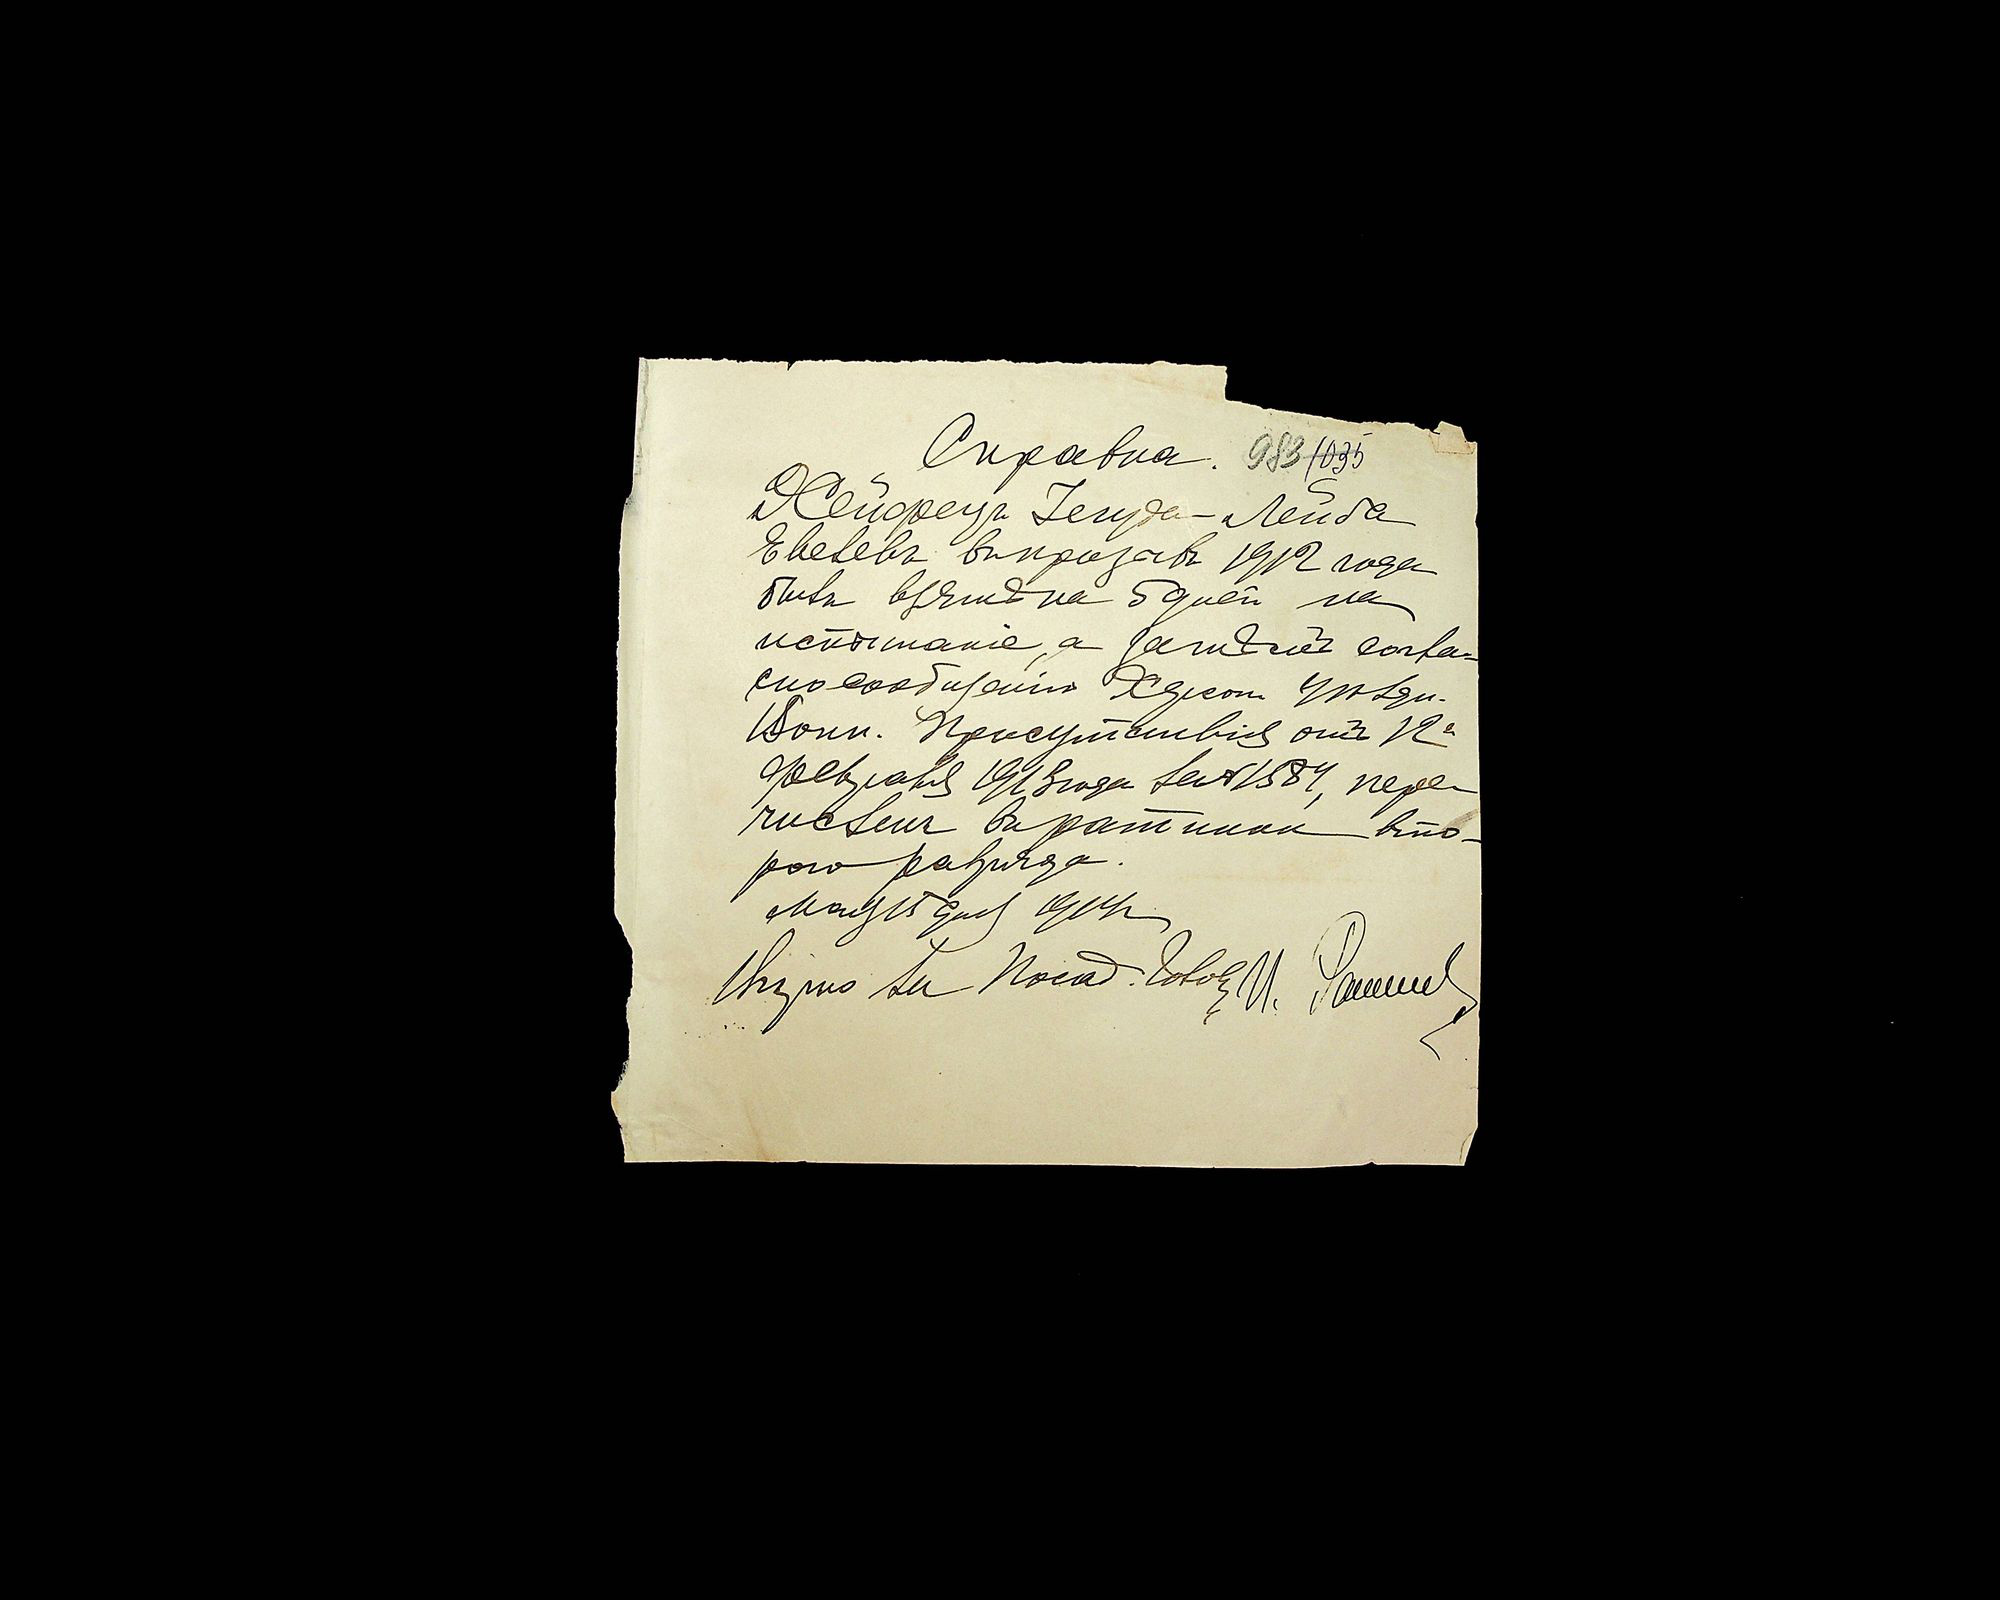 Справка. 983/1035
Хейфецъ Іегуда-Лейба
Евелевъ въ призывъ 1912 года
былъ взятъ на 5 дней на
испытаніе, а затѣмъ согла-
сно сообщенію Херсон. Уѣздн.
Воин. Присутствія отъ 12го
февраля 1913 года за № 1584, пере-
численъ въ ратники вто-
рого разряда.
Мая 15 дня 1914 г.
За Посад. Голов. И.